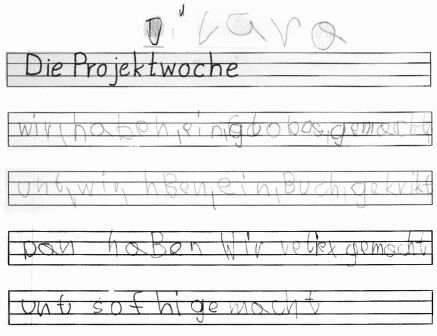 Dilara
Die Projektwoche
wir haben ein globos gemacht
unt wir hBen ein Buch gekrikt
Dan haBen Wir reliex gemacht
unt so fhi gemacht